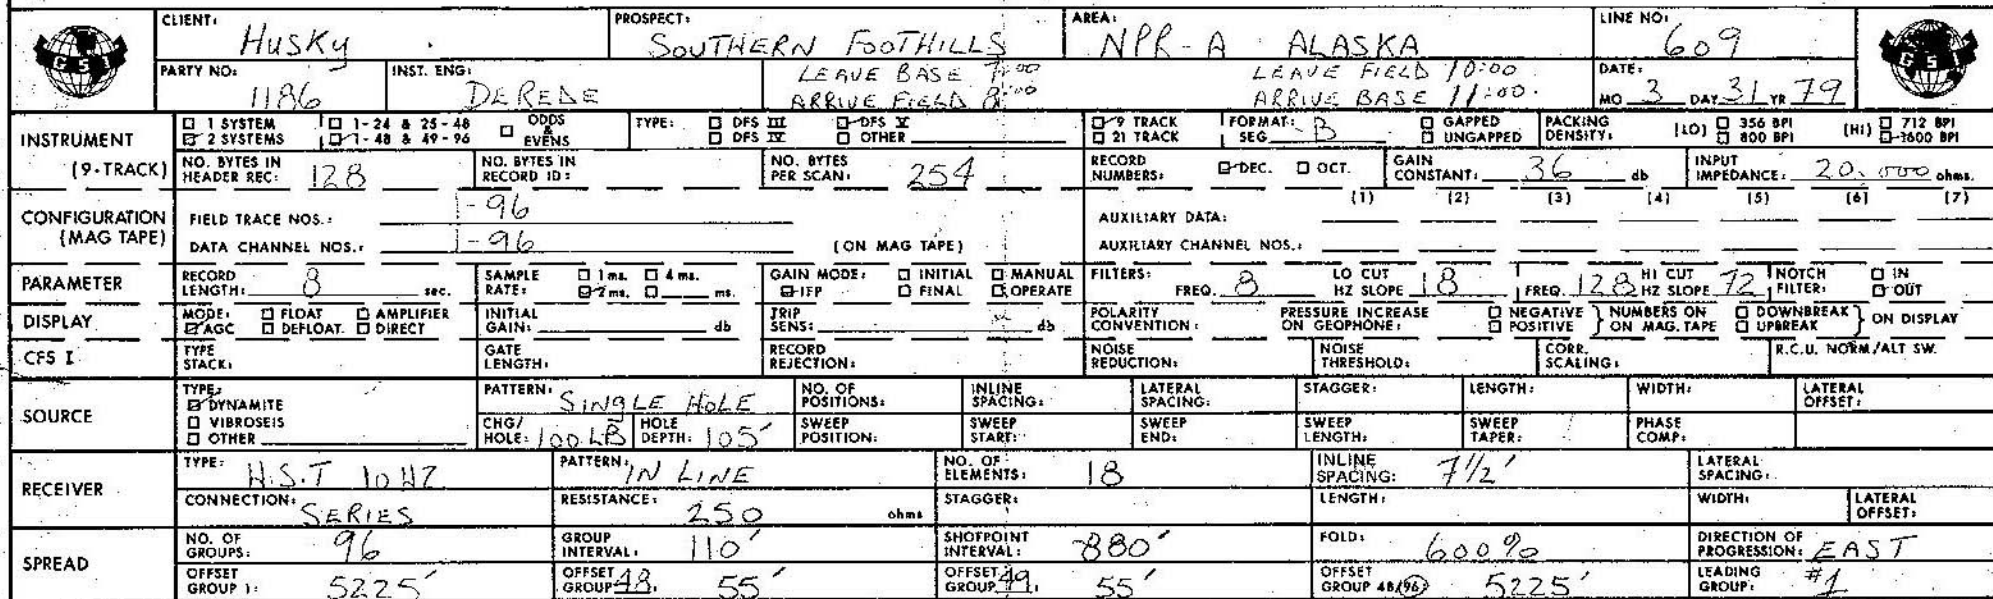 CLIENT: Husky PROSPECT: SOUTHERN FOOTHILLS AREA: NPR-A ALASKA LINE NO: 609
GSI
GSI
PARTY NO: 1186 INST. ENG: DEREDE LEAVE BASE 7:00 LEAVE FIELD 10:00 DATE:
ARRIVE FIELD 8:00 ARRIVE BASE 11:00 MO 3 DAY 31 YR 79
INSTRUMENT 1 SYSTEM 1-24 & 25-48 ODDS & EVENS TYPE: DFS III DFS V 9 TRACK FORMAT: GAPPED PACKING DENSITY: (LO) 356 BPI (HI) 712 BPI
2 SYSTEMS 1-48 & 49-96 DFS IV OTHER 21 TRACK SEG B UNGAPPED 800 BPI 1600 BPI
(9-TRACK) NO. BYTES IN HEADER REC: 128 NO. BYTES IN RECORD ID: NO. BYTES PER SCAN: 254 RECORD NUMBERS: DEC. OCT. GAIN CONSTANT: 36 db INPUT IMPEDANCE: 20,000 ohms.
CONFIGURATION (MAG TAPE) FIELD TRACE NOS.: 1-96 AUXILIARY DATA: (1) (2) (3) (4) (5) (6) (7)
DATA CHANNEL NOS.: 1-96 (ON MAG TAPE) AUXILIARY CHANNEL NOS.:
PARAMETER RECORD LENGTH: 8 sec. SAMPLE RATE: 1 ms. 4 ms. 2 ms. ms. GAIN MODE: INITIAL MANUAL IFP FINAL OPERATE FILTERS: FREQ. 8 LO CUT HZ SLOPE 18 FREQ. 128 HI CUT HZ SLOPE 72 NOTCH FILTER: IN OUT
DISPLAY MODE: FLOAT AMPLIFIER AGC DEFLOAT. DIRECT INITIAL GAIN: db TRIP SENS: db POLARITY CONVENTION: PRESSURE INCREASE ON GEOPHONE: NEGATIVE POSITIVE } NUMBERS ON MAG. TAPE DOWNBREAK UPBREAK } ON DISPLAY
CFS I TYPE STACK: GATE LENGTH: RECORD REJECTION: NOISE REDUCTION: NOISE THRESHOLD: CORR. SCALING: R.C.U. NORM./ALT SW.
SOURCE TYPE: DYNAMITE VIBROSEIS OTHER PATTERN: SINGLE HOLE NO. OF POSITIONS: INLINE SPACING: LATERAL SPACING: STAGGER: LENGTH: WIDTH: LATERAL OFFSET:
CHG/HOLE: 100 LB HOLE DEPTH: 105' SWEEP POSITION: SWEEP START: SWEEP END: SWEEP LENGTH: SWEEP TAPER: PHASE COMP:
RECEIVER TYPE: H.S.T 10 HZ PATTERN: IN LINE NO. OF ELEMENTS: 18 INLINE SPACING: 7 1/2' LATERAL SPACING:
CONNECTION: SERIES RESISTANCE: 250 ohms STAGGER: LENGTH: WIDTH: LATERAL OFFSET:
SPREAD NO. OF GROUPS: 96 GROUP INTERVAL: 110' SHOTPOINT INTERVAL: 880' FOLD: 600% DIRECTION OF PROGRESSION: EAST
OFFSET GROUP 1: 5225' OFFSET GROUP 48: 55' OFFSET GROUP 49: 55' OFFSET GROUP 48/96: 5225' LEADING GROUP: #1